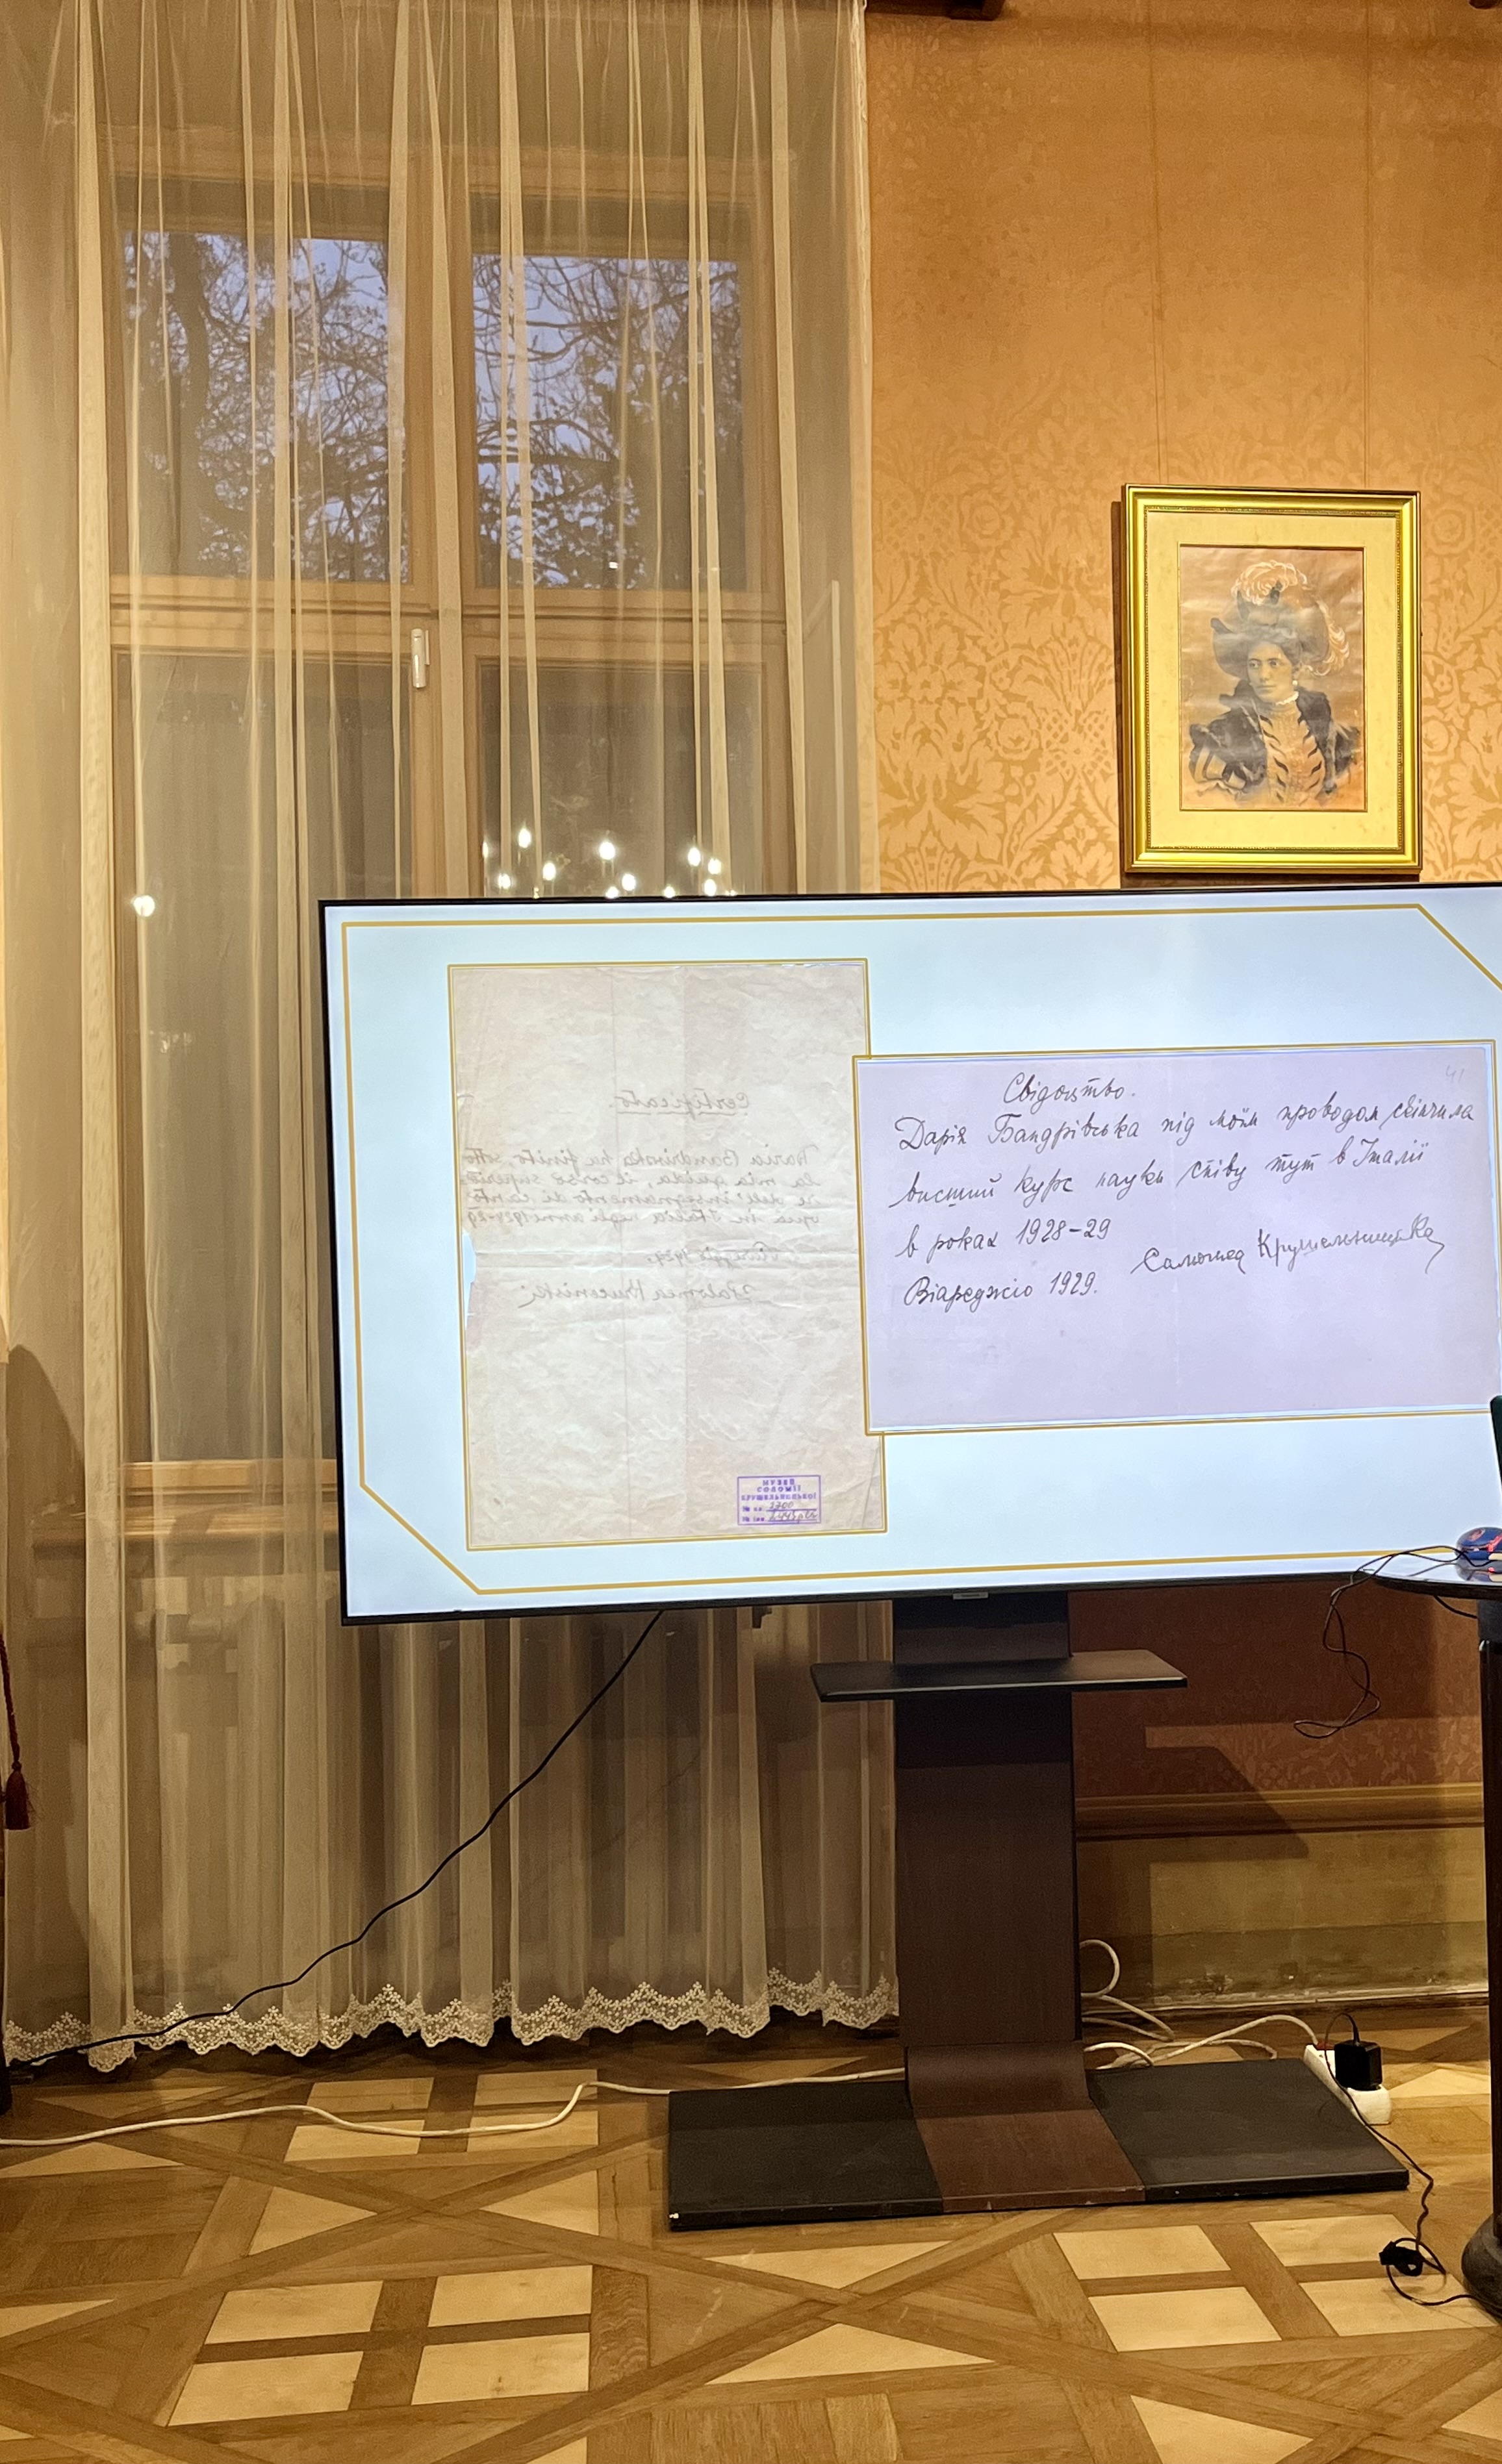 Certificato.
Daria Bandrivska ha finito, sotto
la mia guida, il corso superio
re dell'insegnamento di canto
qua in Italia negli anni 1928-29
Viareggio 1929.
Salomea Krusceniski
МУЗЕЙ
СОЛОМІЇ
КРУШЕЛЬНИЦЬКОЇ
№ кв 3700
№ інв
41
Свідоцтво.
Дарія Бандрівська під моїм проводом скінчила
висший курс науки співу тут в Італії
в роках 1928-29
Саломея Крушельницька
Віареджіо 1929.